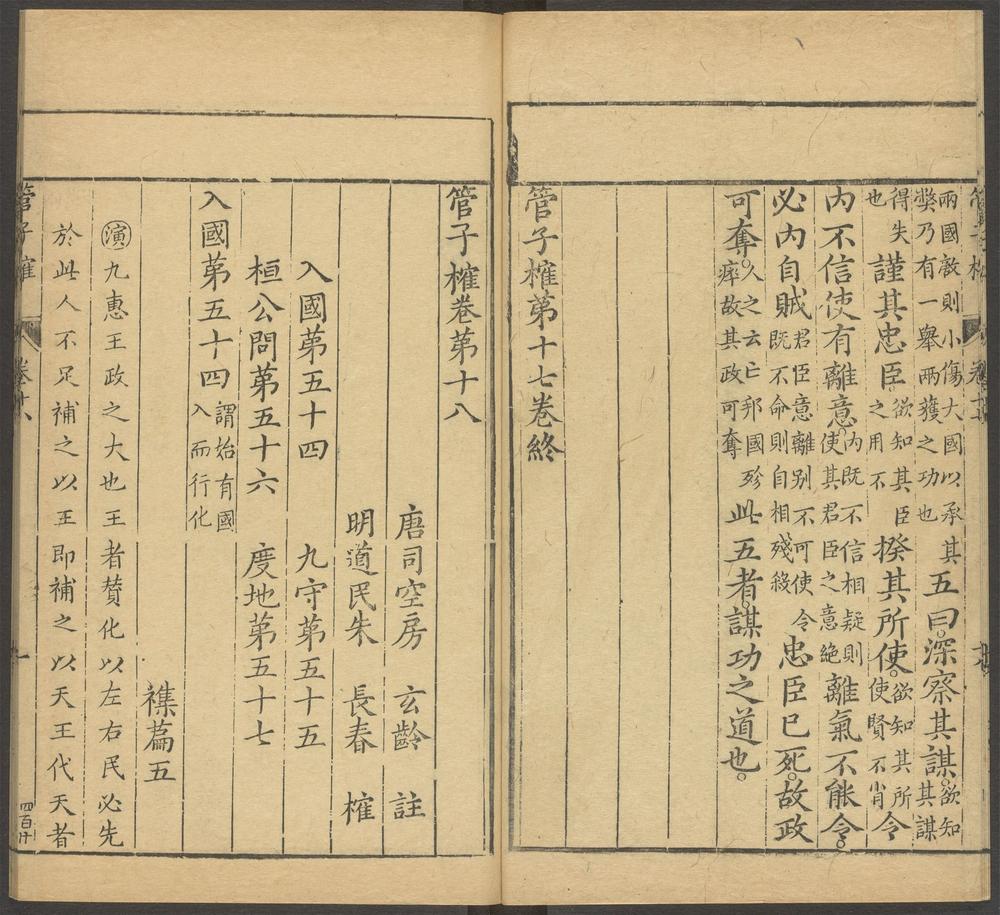 兩國敵則小傷大國以承其
獘乃有一舉兩獲之功也
五曰深察其謀
欲知
其謀
得失
也
謹其忠臣
欲知其臣
之用不
揆其所使
欲知其所
使賢不肖
令
內不信使有離意
內既不信相疑則
使其君臣之意絕
離氣不能令
必內自賊
君臣意離别不可使令
既不命則自相殘殺
忠臣已死故政
可奪
人之云亡邦國殄
瘁故其政可奪
此五者謀功之道也
管子榷第十七卷終
管子榷卷第十八
唐司空房 玄齡 註
明道民朱 長春 榷
入國第五十四 九守第五十五
桓公問第五十六 度地第五十七
入國第五十四
謂始有國
入而行化
襍篇五
演九惠王政之大也王者賛化以左右民必先
於此人不足補之以王即補之以天王代天者
管子榷
卷十八
一
四百廿